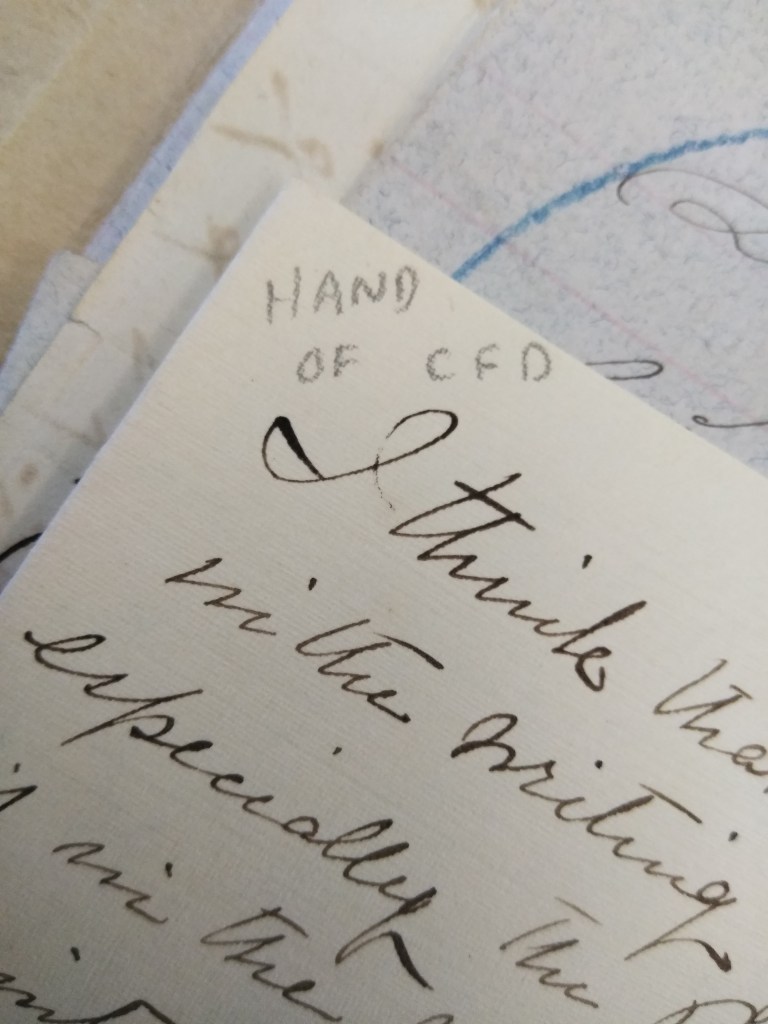 HAND
OF CFD
I think tha
in the writing
especially the
in the